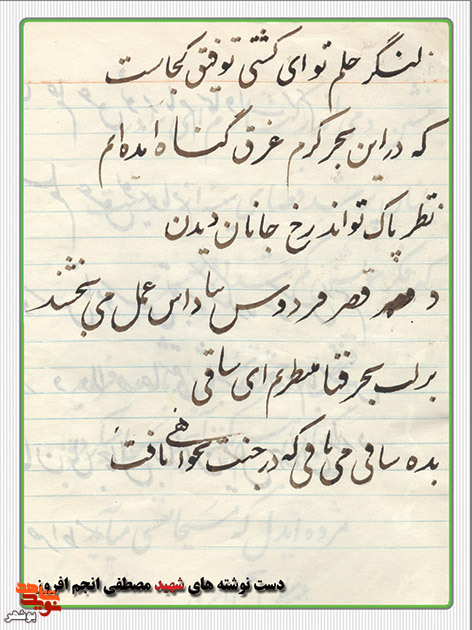 لنگر حلم تو ای کشتی توفیق کجاست
که در این بحر کرم غرق گناه آمده ایم
نظر پاک تواند رخ جانان دیدن
و قصر فردوس بپاداش عمل می بخشند
بر لب بحر فنا منتظریم ای ساقی
بده ساقی می باقی که در جنت نخواهی یافت
دست نوشته های شهید مصطفی انجم افروز
شاهد
نوید
بوشهر